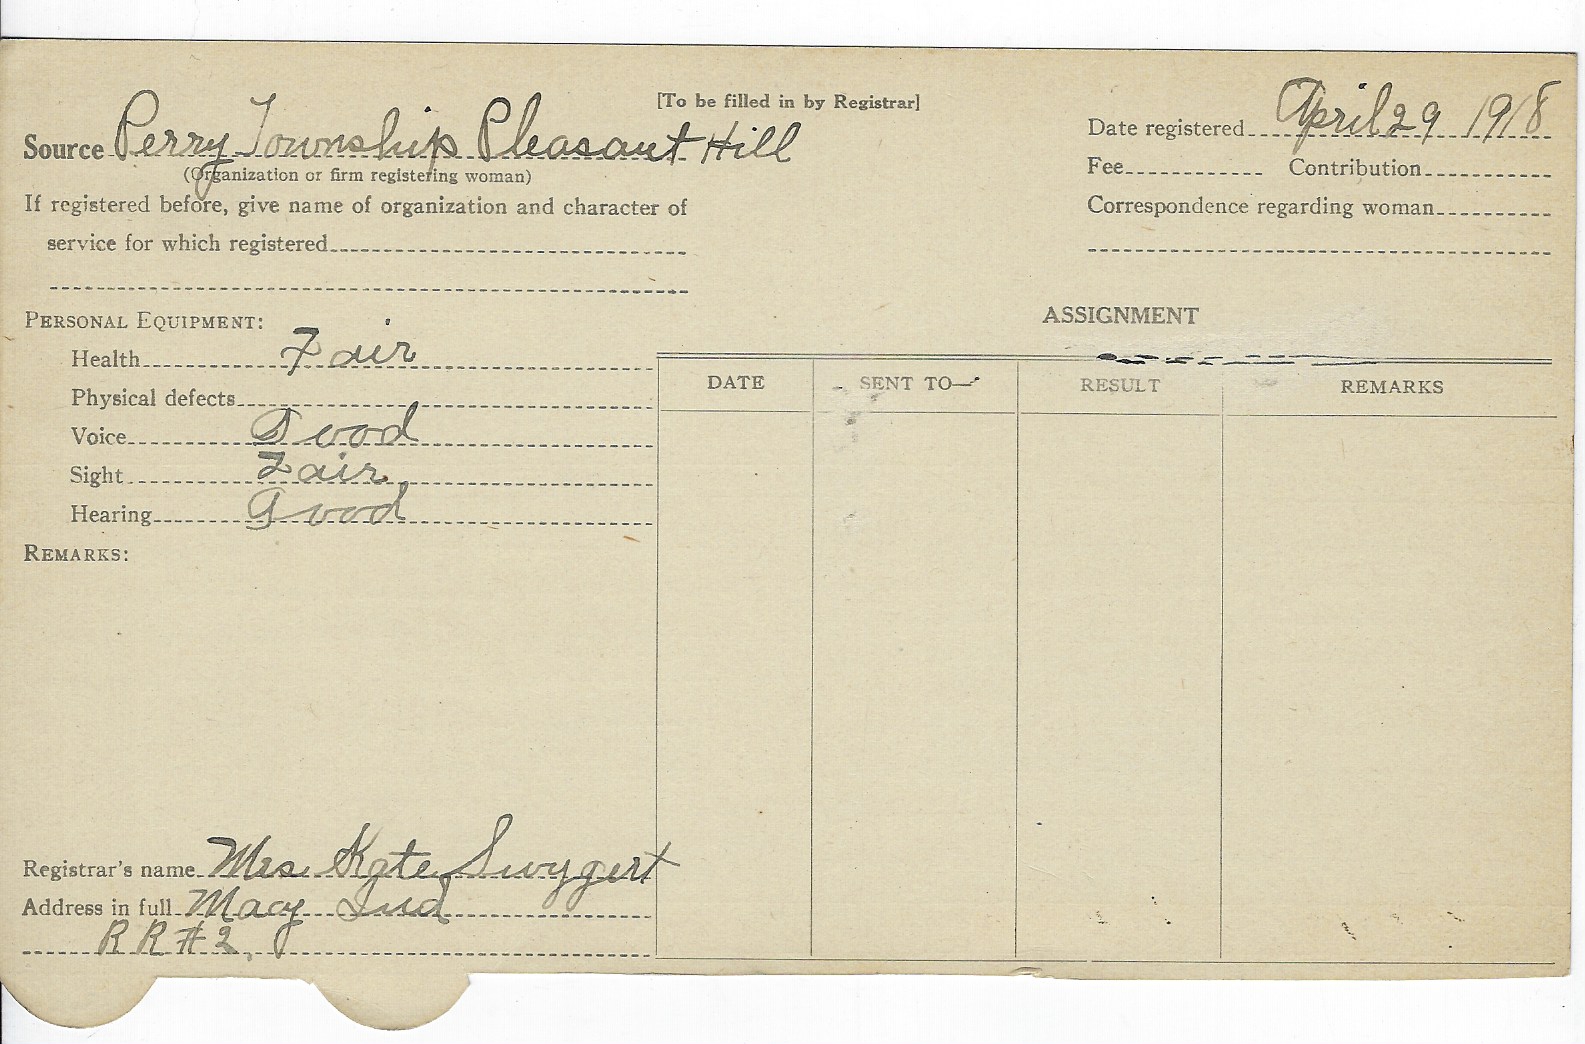 [To be filled in by Registrar]
Source Perry Township Pleasant Hill
(Organization or firm registering woman)
If registered before, give name of organization and character of
service for which registered
Date registered April 29 1918
Fee Contribution
Correspondence regarding woman
PERSONAL EQUIPMENT:
Health Fair
Physical defects
Voice Good
Sight Fair
Hearing Good
REMARKS:
ASSIGNMENT
DATE SENT TO— RESULT REMARKS
Registrar's name Mrs Kate Swygert
Address in full Macy Ind
R R #2,